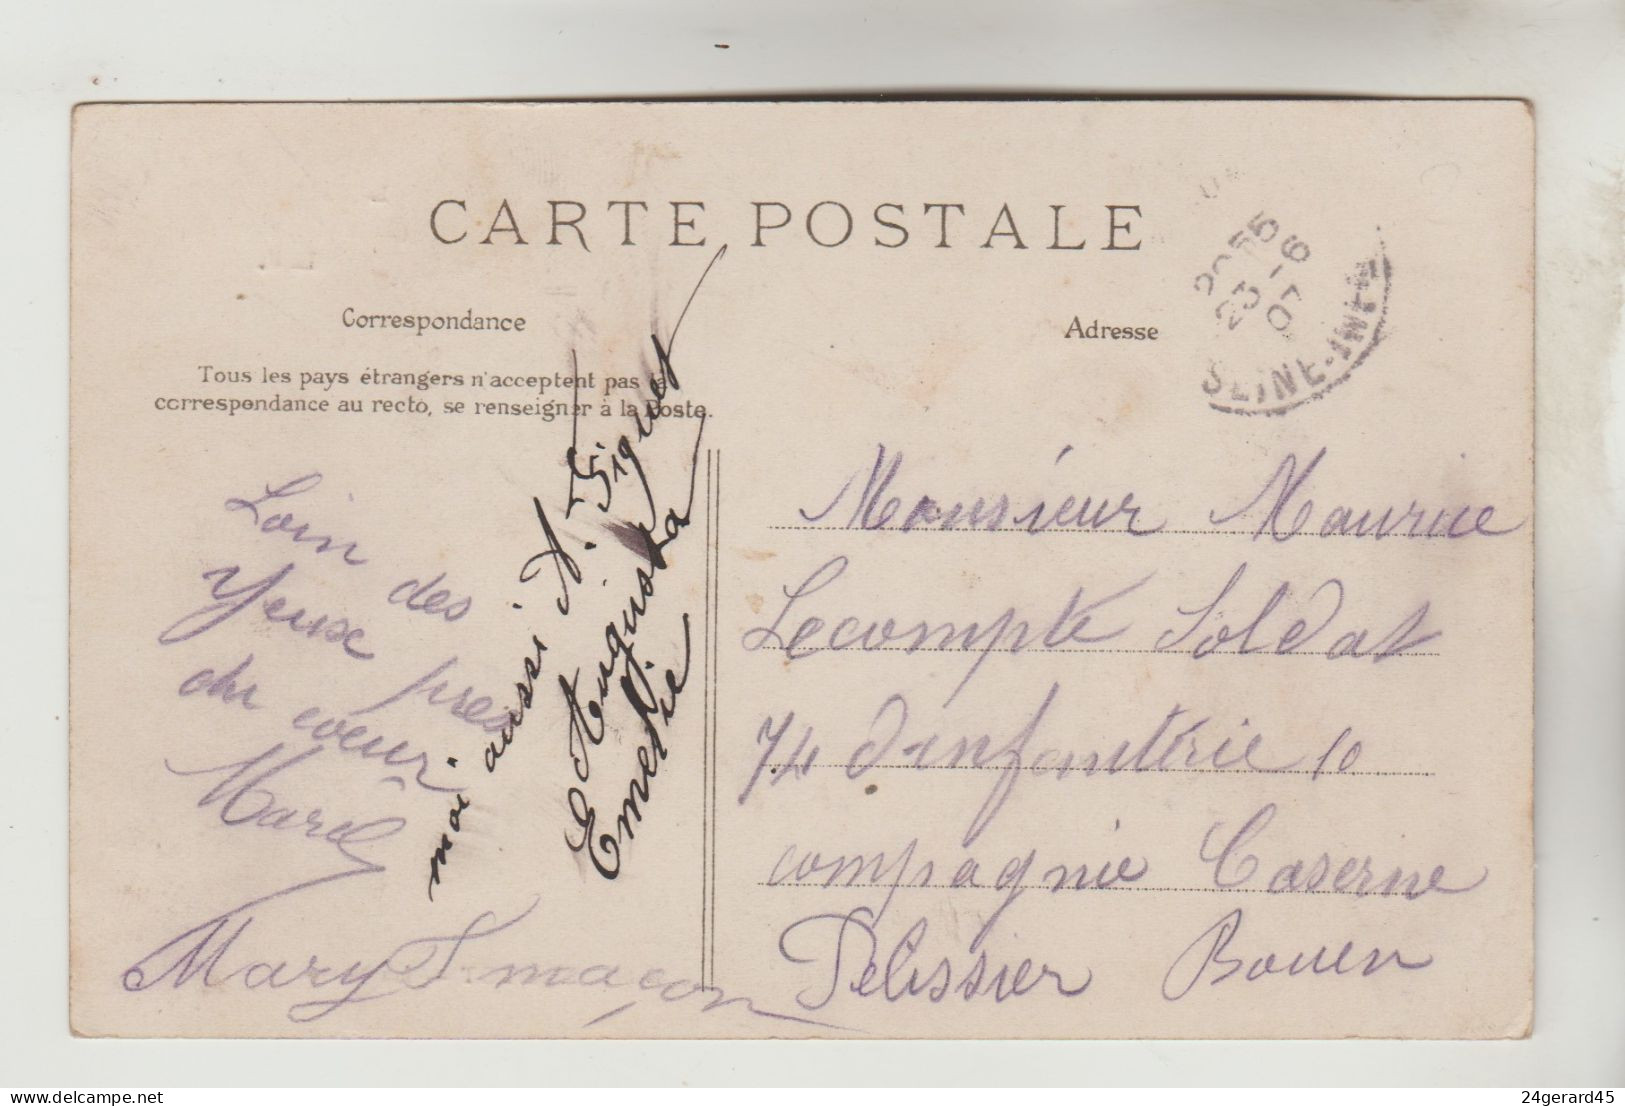 CARTE POSTALE
Correspondance
Tous les pays étrangers n'acceptent pas la
correspondance au recto, se renseigner à la Poste.
Adresse
23-6
07
SEINE-INFRE
Loin des
Yeux pres
du coeur
Mary
moi aussi
Monsieur Maurice
Lecompte Soldat
74 d'infanterie 10
compagnie Caserne
Pelissier Rouen
www.delcampe.net
24gerard45